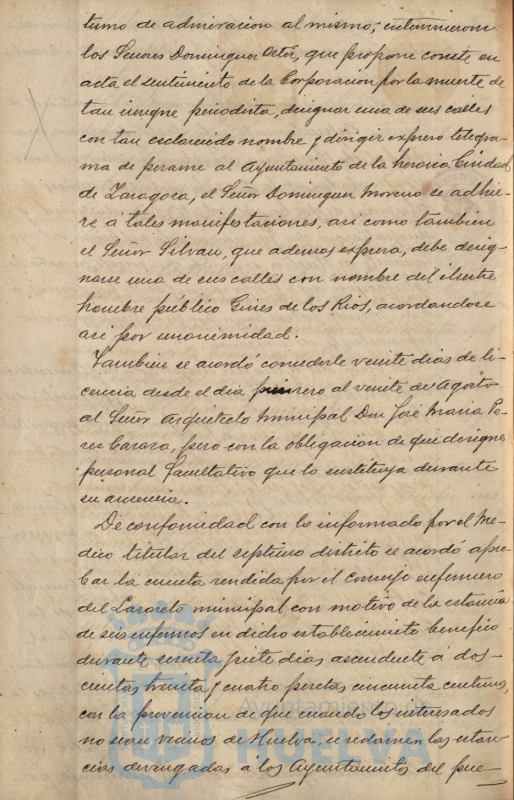 tumo de admiracion al mismo; intervinieron
los Señores Dominguez Ortiz, que propone conste en
acta el sentimiento de la Corporacion por la muerte de
tan insigne periodista, designar una de sus calles
con tan esclarecido nombre y dirigir expreso telegra-
ma de pesame al Ayuntamiento de la heroica Ciudad
de Zaragoza, el Señor Dominguez Moreno se adhie-
re á tales manifestaciones, asi como tambien
el Señor Silvan, que ademas expresa, debe desig-
narse una de sus calles con nombre del ilustre
hombre público Gines de los Rios, acordandose
asi por unanimidad.
Tambien se acordó concederle veinte dias de li-
cencia desde el dia primero al veinte de Agosto
al Señor Arquitecto Municipal Don José Maria Pe-
rez Carasa, pero con la obligacion de que designe
personal facultativo que lo sustituya durante
su ausencia.
De conformidad con lo informado por el Me-
dico titular del septimo distrito se acordó apro-
bar la cuenta rendida por el Conserje enfermero
del Lazareto municipal con motivo de la estancia
de seis enfermos en dicho establecimiento benefico
durante sesenta y siete dias ascendente á dos-
cientas treinta y cuatro pesetas cincuenta centimos,
con la prevencion de que cuando los interesados
no sean vecinos de Huelva, se reclamen las estan-
cias devengadas á los Ayuntamientos del pue-
Ayuntamiento de
HUELVA